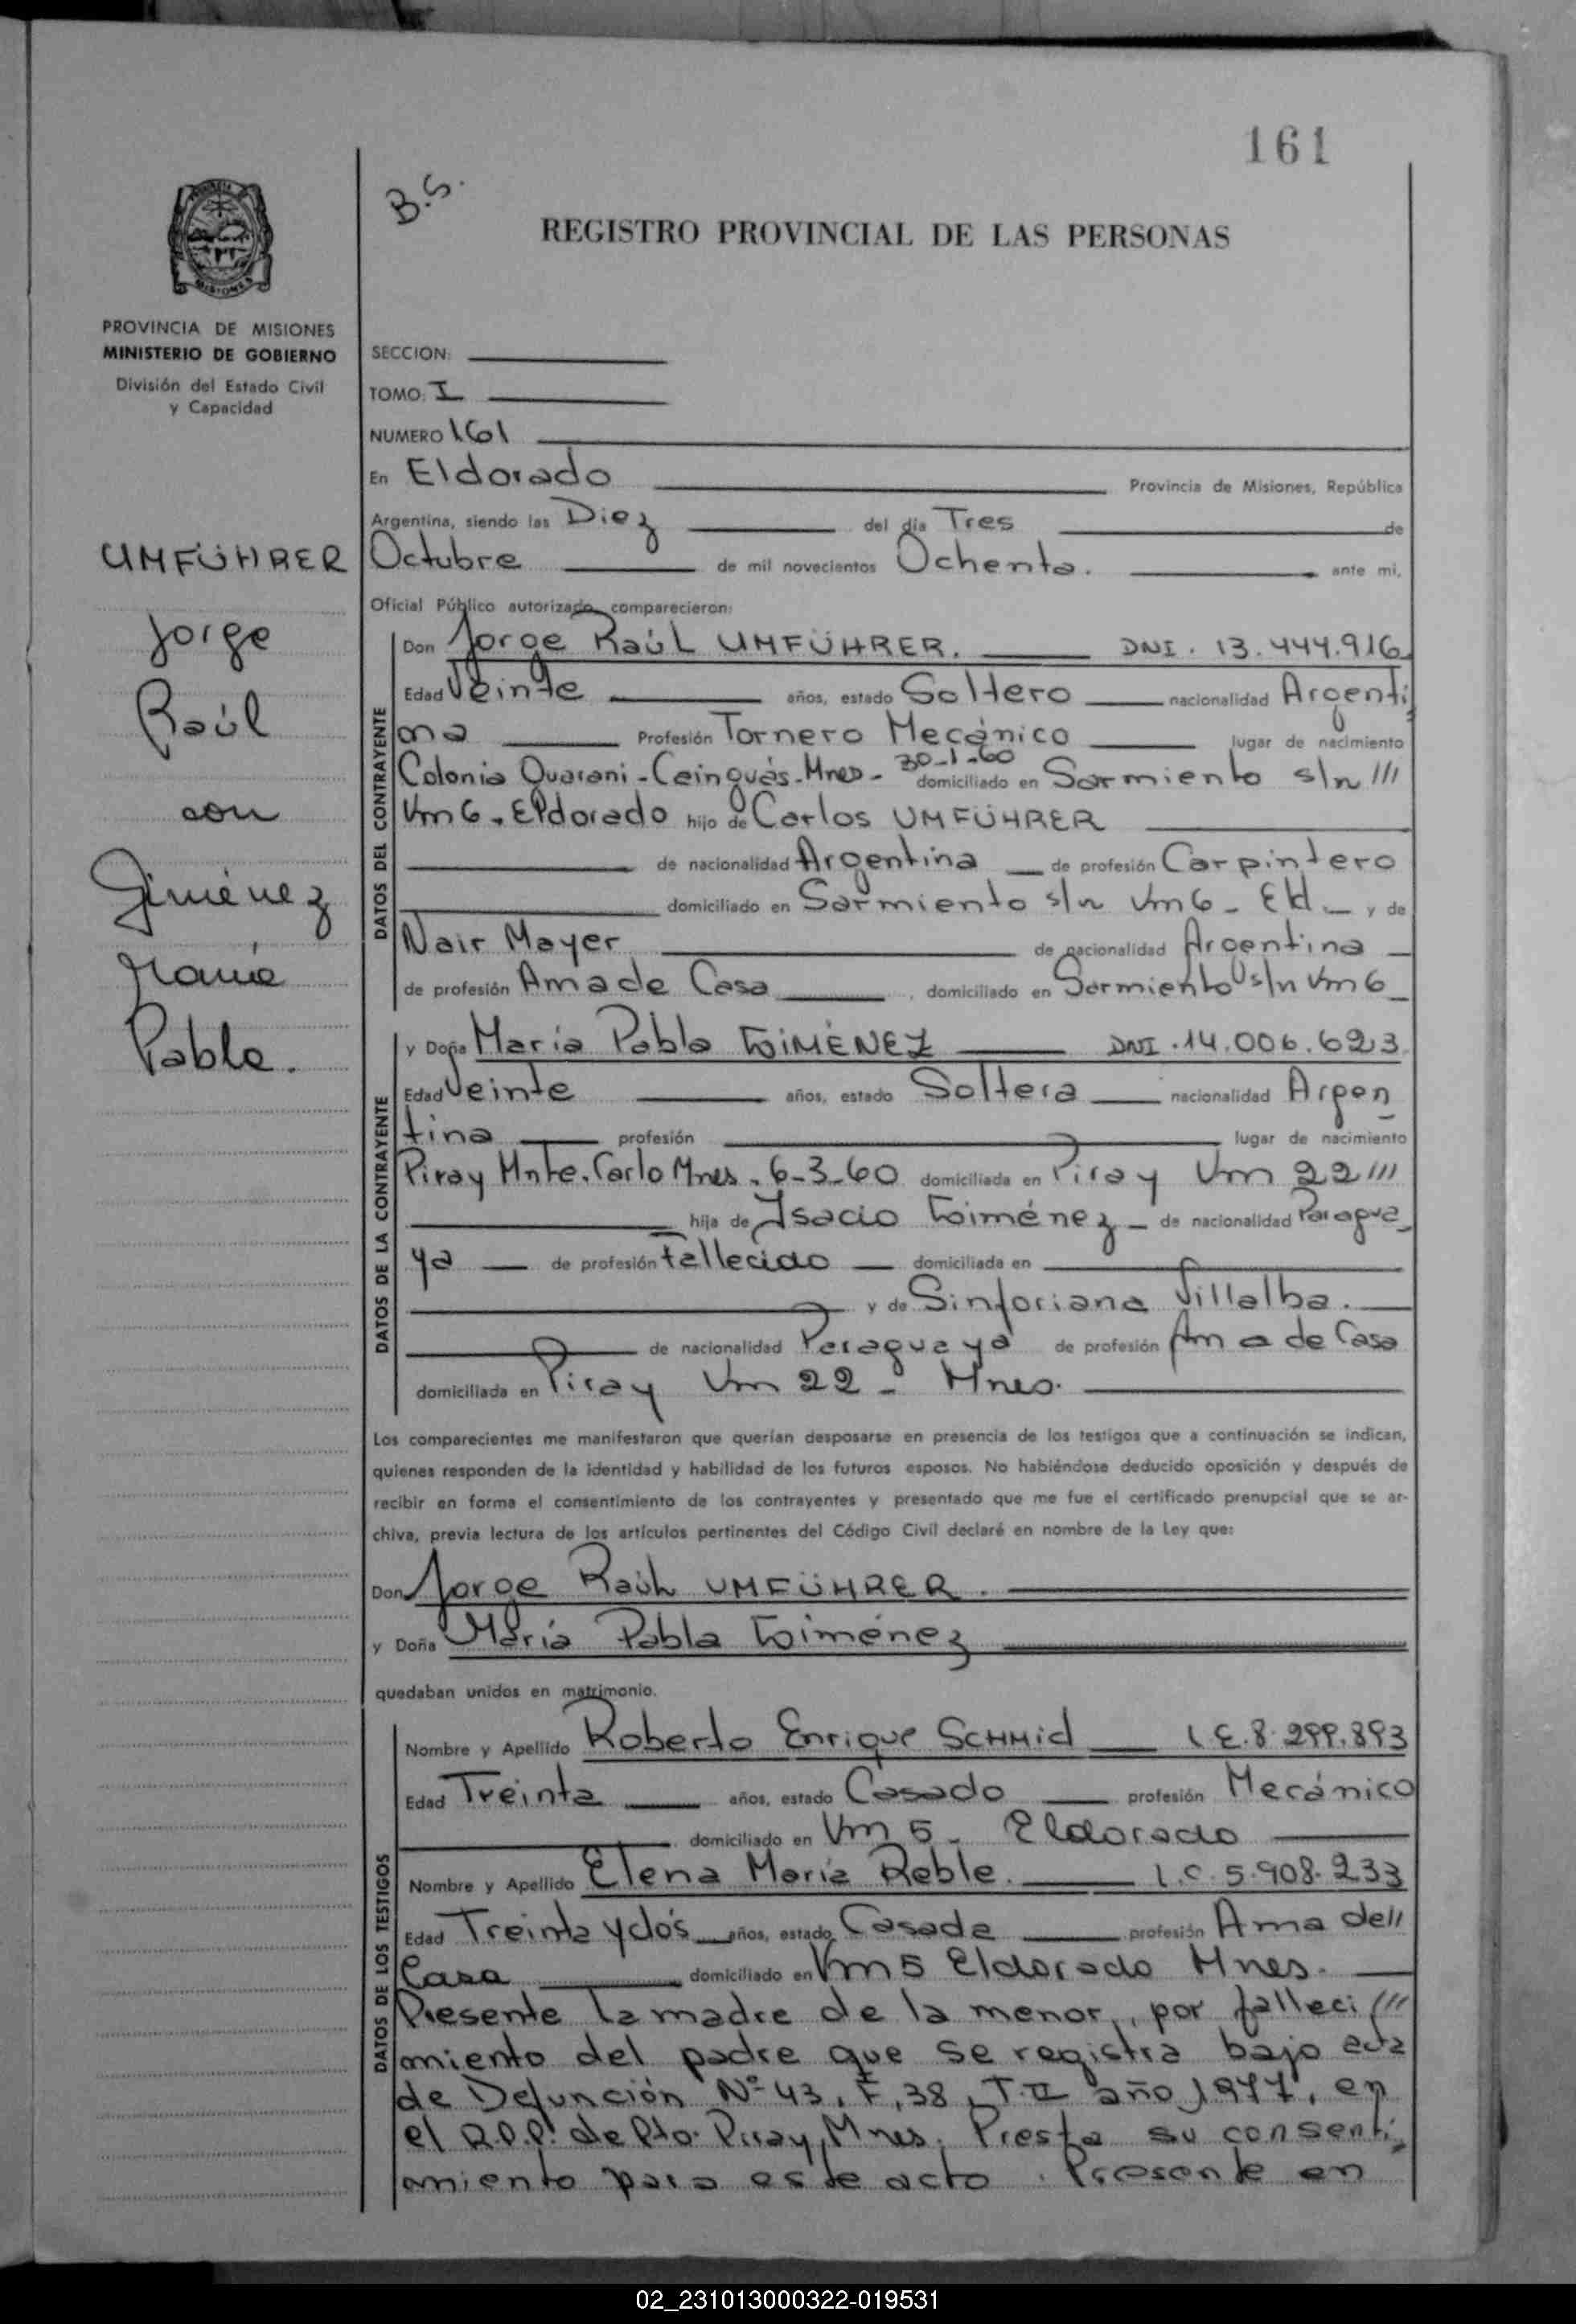 161
B.S.
REGISTRO PROVINCIAL DE LAS PERSONAS
PROVINCIA DE MISIONES
MINISTERIO DE GOBIERNO
División del Estado Civil
y Capacidad
UMFÜHRER
Jorge
Raúl
con
Giménez
María
Pabla.
SECCION:
TOMO: I
NUMERO 161
En Eldorado Provincia de Misiones, República
Argentina, siendo las Diez del día Tres de
Octubre de mil novecientos Ochenta. ante mi,
Oficial Público autorizado comparecieron:
DATOS DEL CONTRAYENTE
Don Jorge Raúl UMFÜHRER. DNI. 13.444.916
Edad Veinte años, estado Soltero nacionalidad Argenti
na Profesión Tornero Mecánico lugar de nacimiento
Colonia Guarani - Cainguás - Mnes - 30-1-60 domiciliado en Sarmiento s/n ///
Km 6 - Eldorado hijo de Carlos UMFÜHRER
de nacionalidad Argentina de profesión Carpintero
domiciliado en Sarmiento s/n Km 6 - Eld. y de
Nair Mayer de nacionalidad Argentina
de profesión Ama de Casa, domiciliado en Sarmiento s/n Km 6
DATOS DE LA CONTRAYENTE
y Doña María Pabla GIMÉNEZ DNI. 14.006.623
Edad Veinte años, estado Soltera nacionalidad Argen
tina profesión lugar de nacimiento
Piray Mnte. Carlo Mnes. 6-3-60 domiciliada en Piray Km 22 ///
hija de Isacio Giménez de nacionalidad Paragua
ya de profesión Fallecido domiciliada en
y de Sinforiana Villalba.
de nacionalidad Paraguaya de profesión Ama de Casa
domiciliada en Piray Km 22 - Mnes.
Los comparecientes me manifestaron que querían desposarse en presencia de los testigos que a continuación se indican,
quienes responden de la identidad y habilidad de los futuros esposos. No habiéndose deducido oposición y después de
recibir en forma el consentimiento de los contrayentes y presentado que me fue el certificado prenupcial que se ar-
chiva, previa lectura de los artículos pertinentes del Código Civil declaré en nombre de la Ley que:
Don Jorge Raúl UMFÜHRER.
y Doña María Pabla Giménez
quedaban unidos en matrimonio.
DATOS DE LOS TESTIGOS
Nombre y Apellido Roberto Enrique SCHMid L.E. 8.299.893
Edad Treinta años, estado Casado profesión Mecánico
domiciliado en Km 5 - Eldorado
Nombre y Apellido Elena María Reble. L.C. 5.908.233
Edad Treinta y dós años, estado Casada profesión Ama de //
Casa domiciliado en Km 5 Eldorado Mnes.
Presente la madre de la menor, por falleci ///
miento del padre que se registra bajo acta
de Defunción Nº 43, F, 38, T. II año 1977, en
el R.P.P. de Pto. Piray, Mnes. Presta su consenti
miento para este acto. Presente en
02_231013000322-019531